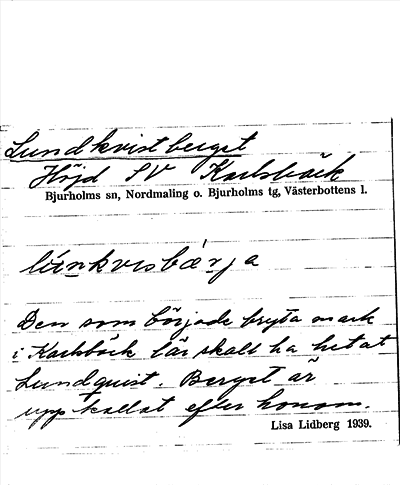 Lundkvistberget
Höjd SV Karlsbäck
Bjurholms sn, Nordmaling o. Bjurholms tg, Västerbottens l.
Den som började bryta mark
i Karlsbäck lär skall ha hetat
Lundquist. Berget är
uppkallat efter honom.
Lisa Lidberg 1939.